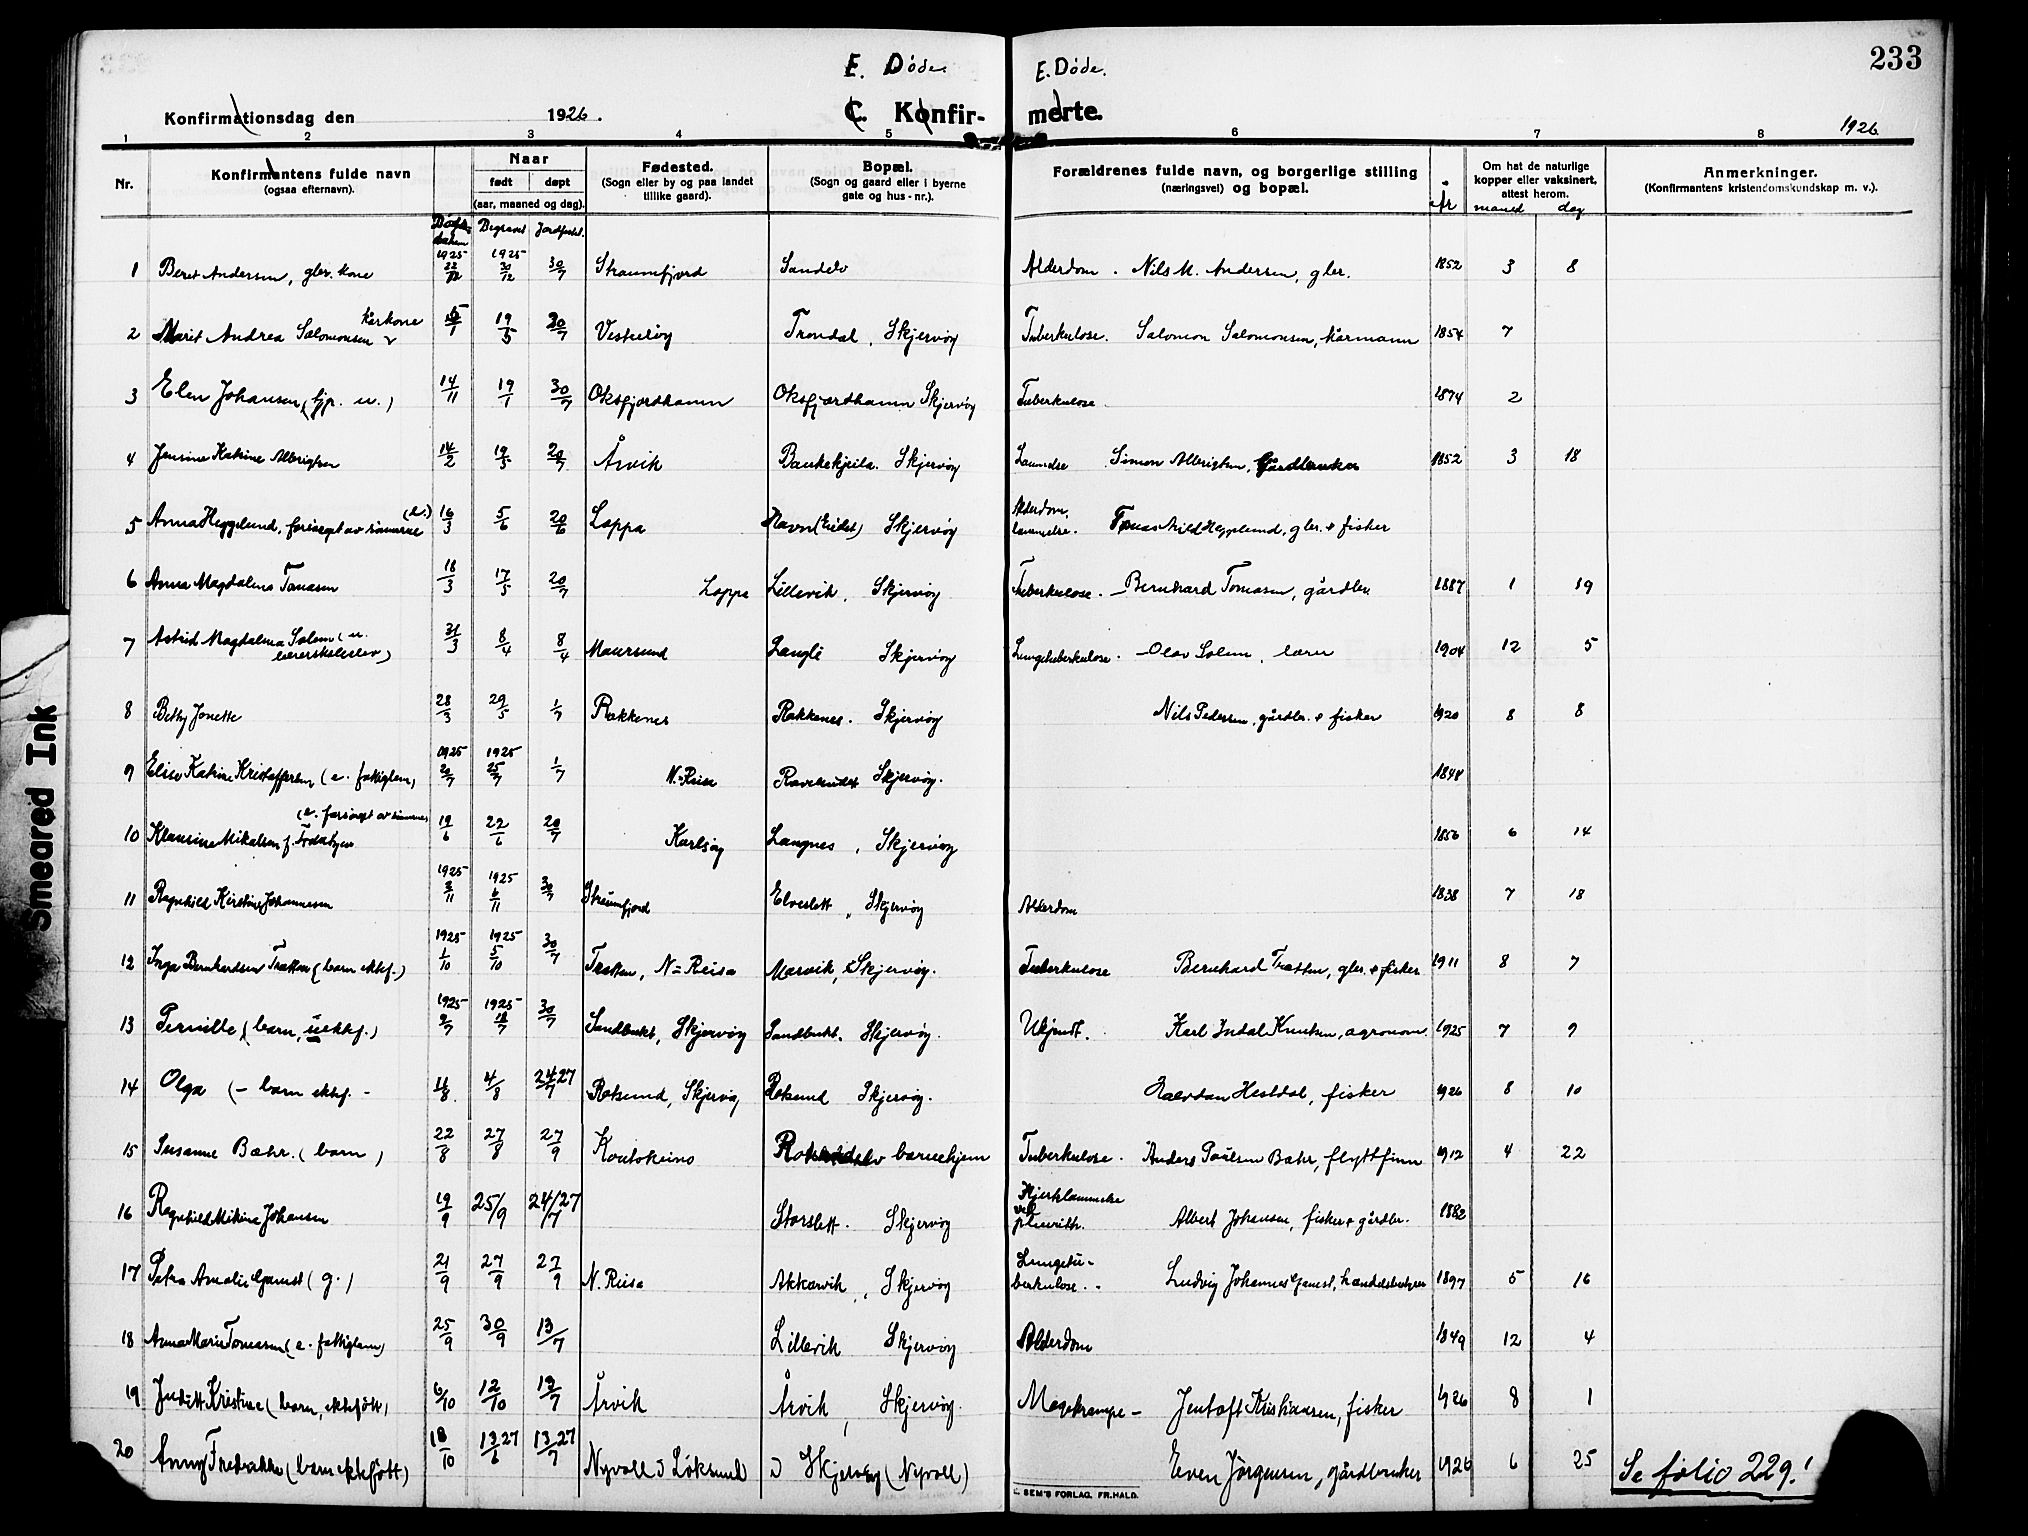 233
E. Døde.
E. Døde.
Konfirmationsdag den 1926.
C. Konfir-
merte.
1926
1 2 3 4 5 6 7 8
Nr.
Konfirmantens fulde navn
(ogsaa efternavn).
Naar
født døpt
(aar, maaned og dag).
Fødested.
(Sogn eller by og paa landet
tillike gaard).
Bopæl.
(Sogn og gaard eller i byerne
gate og hus-nr.).
Forældrenes fulde navn, og borgerlige stilling
(næringsvei) og bopæl.
år
Om hat de naturlige
kopper eller vaksinert,
attest herom.
maaned dag
Anmerkninger.
(Konfirmantens kristendomskundskap m. v.).
Begravet Jordfæstet.
1 Beret Andersen, gbr. kone 1925 22/12 1925 30/12 30/7 Straumfjord Sandelv Alderdom. Nils M. Andersen, gbr. 1852 3 8
2 Marit Andrea Salomonsen kårkone 19/5 30/7 Trondal, Skjervøy Tuberkulose. Salomon Salomonsen, kårmann 1854 7
3 Elen Johansen (fjp. u.) 14/11 19/1 30/7 Oksfjordhamn Oksfjordhamn Skjervøy Tuberkulose 1874 2
4 Jensine Katrine Albrigtsen 14/2 19/5 20/7 Årvik Bankekjeila. Skjervøy Lammelse Simon Albrigtsen, Gårdbruker 1852 3 18
5 Anna Heggelund, forsørget av sønnene (e.) 16/3 5/6 20/6 Loppa Havn (Eidet) Skjervøy Alderdom, lammelse. Heggelund, gbr. + fisker
6 Anna Magdalena Tomasen 18/3 17/5 20/7 Loppa Lillevik, Skjervøy Tuberkulose. Bernhard Tomasen, gårdbr. 1887 1 19
7 Astrid Magdalena Solem (u. lærerskoleelev) 31/3 8/4 8/4 Maursund Langli Skjervøy Lungetuberkulose. Olav Solem, lærer 1904 12 5
8 Betty Jonette 28/3 29/5 1/7 Rakkenes Rakkenes. Skjervøy Nils Pedersen, gårdbr. + fisker 1920 8 8
9 Elise Katrine Kristoffersen (e. fattiglem) 1925 20/7 1925 25/7 1/7 N.-Reisa Ravelseidet Skjervøy. 1848
10 Klausine Mikalsen f. (e. forsørget av sønnene) 19/6 22/6 20/7 Karlsøy Langnes, Skjervøy 1856 6 14
11 Ragnhild Kirstine Johannesen 1925 2/11 1925 6/11 30/7 Straumfjord Elveslett, Skjervøy Alderdom 1838 7 18
12 Inga Bernhardsen Tratten (barn ektef.) 1925 1/10 1925 5/10 30/7 Tratten, N-Reisa Marvik, Skjervøy. Tuberkulose Bernhard Tratten, gbr. + fisker 1911 8 7
13 Pernille (barn, uektf.) 1925 9/7 1925 18/7 30/7 Sandbukt, Skjervøy Sandbukt. Skjervøy. Ukjendt. Karl Indal Knutsen, agronom. 1925 7 9
14 Olga (- barn ektef. - 11/8 4/8 24/7 27 Rotsund, Skjervøy Rotsund Skjervøy. Halvdan Hestdal, fisker 1926 8 10
15 Susanne Bæhr. (barn) 22/8 27/8 27/9 Kautokeino Rotsundelv barnehjem Tuberkulose. Anders Poulsen Bæhr, flyttfinn 1912 4 22
16 Ragnhild Mikine Johansen 19/9 25/9 24/7 27 Storslett. Skjervøy Hjertelammelse ved pleuritt. Albert Johansen, fisker + gårdbr. 1882
17 Petra Amalie Gamst (g.) 21/9 27/9 27/9 N. Reisa Akkarvik, Skjervøy Lungetu-
berkulose. Ludvig Johannes Gamst, handelsbetjen 1897 5 16
18 Anna Marie Tomasen (e. fattiglem) 25/9 30/9 13/7 Lillevik Skjervøy Alderdom 1849 12 4
19 Juditt Kristine (barn, ektefött) 6/10 12/10 12/7 Årvik Årvik, Skjervøy. Magekrampe - Jentoft Kristiansen, fisker 1926 8 1
20 Anny Fredrikke (barn ektefött) 18/10 13/6 27 13/7 27 Nyvoll i Löksund Skjervøy (Nyvoll) Even Jörgensen, gårdbruker 1926 6 25 Se folio 229!
SEM'S FORLAG, FR.HALD.
Smeared Ink